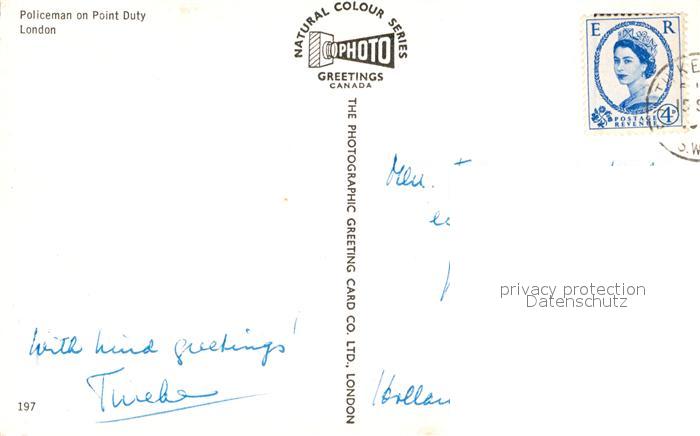 Policeman on Point Duty
London
NATURAL COLOUR SERIES
PHOTO
GREETINGS
CANADA
THE PHOTOGRAPHIC GREETING CARD CO. LTD., LONDON
E R
POSTAGE
REVENUE
4D
S.W
privacy protection
Datenschutz
With kind greetings
Hollan
197